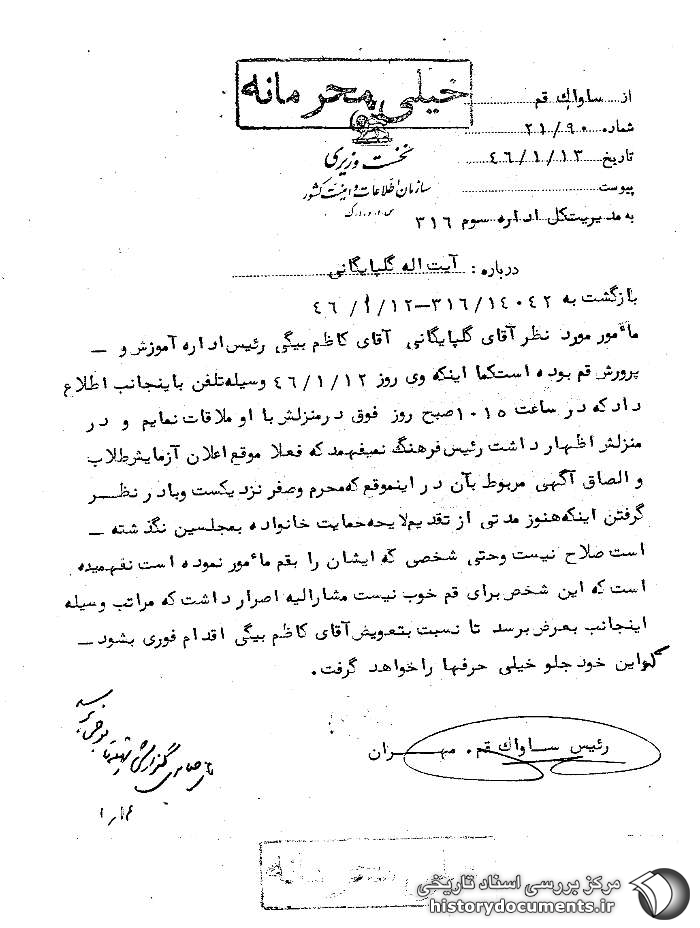 خیلی محرمانه
از ساواک قم
شماره ۲۱/۹۰
تاریخ ۴۶/۱/۱۳
پیوست
نخست وزیری
سازمان اطلاعات و امنیت کشور
س.ا.و.ا.ک
به مدیریتکل اداره سوم ۳۱۶
درباره: آیت اله گلپایگانی
بازگشت به ۳۱۶/۱۴۰۴۲–۴۶/۱/۱۲
مأمور مورد نظر آقای گلپایگانی آقای کاظم بیگی رئیس اداره آموزش و –
پرورش قم بوده است کما اینکه وی روز ۴۶/۱/۱۲ وسیله تلفن باینجانب اطلاع
داد که در ساعت ۱۰۱۵ صبح روز فوق در منزلش با او ملاقات نمایم و در
منزلش اظهار داشت رئیس فرهنگ نمیفهمد که فعلا موقع اعلان آزمایش طلاب
و الصاق آگهی مربوط بآن در اینموقع که محرم وصفر نزدیکست وبا در نظر
گرفتن اینکه هنوز مدتی از تقدیم لایحه حمایت خانواده بمجلسین نگذشته –
است صلاح نیست وحتی شخصی که ایشان را بقم مأمور نموده است نفهمیده
است که این شخص برای قم خوب نیست مشارالیه اصرار داشت که مراتب وسیله
اینجانب بعرض برسد تا نسبت بتعویض آقای کاظم بیگی اقدام فوری بشود –
که این خود جلو خیلی حرفها را خواهد گرفت.
رئیس ساواک قم. مهران
گزارش
خیلی محرمانه
مرکز بررسی اسناد تاریخی
historydocuments.ir